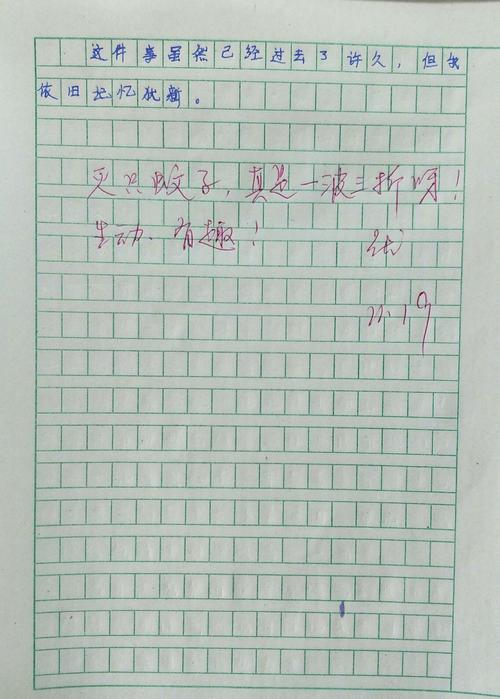 这件事虽然已经过去了许久，但我
依旧记忆犹新。
灭只蚊子，真是一波三折呀！
生动、有趣！ 优
11.19